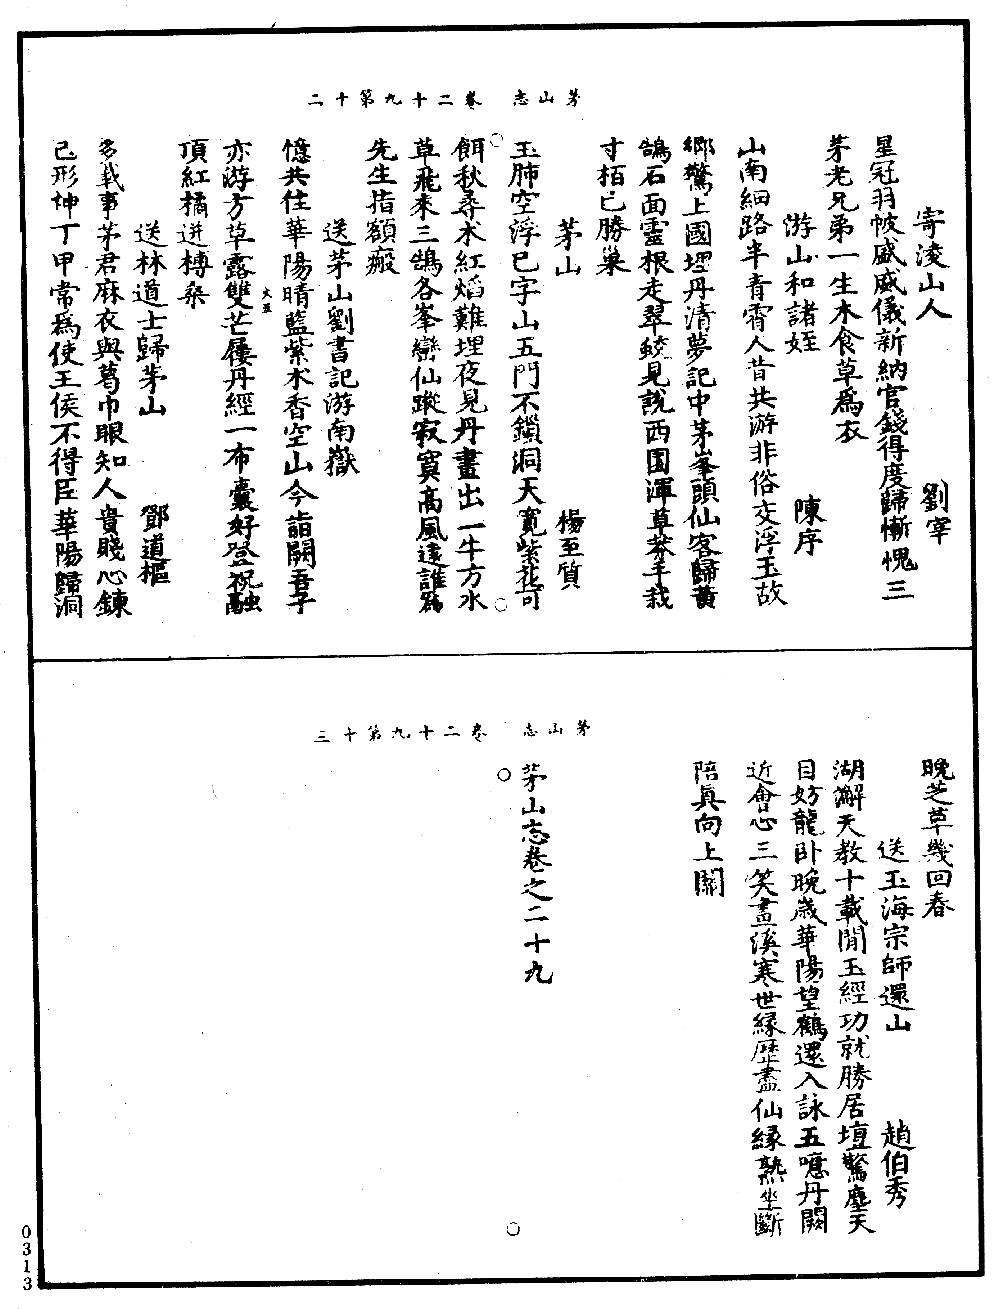 茅山志　卷二十九第十二
寄淩山人　劉宰
星冠羽帔盛威儀新納官錢得度歸慚愧三
茅老兄弟一生木食草為衣
游山和諸姪　陳序
山南細路半青霄人昔共游非俗交浮玉故
鄉驚上國埋丹清夢記中茅峯頭仙客歸黃
鵠石面靈根走翠蛟見說西園渾草莽手栽
寸栢已勝巢
茅山　楊至質
玉肺空浮巳字山五門不鎖洞天寛紫花可
餌秋尋朮紅熖難埋夜見丹畫出一牛方水
草飛來三鵠各峯巒仙蹤寂寞高風逺誰為
先生指額瘢
送茅山劉書記游南嶽
憶共住華陽晴藍紫朮香空山今詣闕吾子
亦游方草露雙芒屨丹經一布囊好登祝融
頂紅橘迸榑桑
送林道士歸茅山　鄧道樞
多載事茅君麻衣與葛巾眼知人貴賤心鍊
己形神丁甲常為使王侯不得臣華陽歸洞
茅山志　卷二十九第十三
晚芝草幾回春
送玉海宗師還山　趙伯秀
湖澥天教十載閒玉經功就勝居壇驚塵天
目妨龍卧晚歲華陽望鶴還入詠五噫丹闕
近會心三笑畫溪寒世緣歷盡仙緣熟坐斷
陪真向上關
茅山志卷之二十九
0313